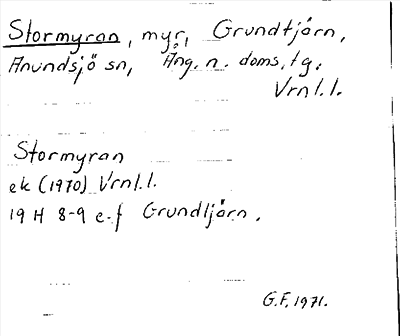 Stormyran, myr, Grundtjärn,
Anundsjö sn, Ång. n. doms. tg.
Vrnl.l.
Stormyran
ek (1970) Vrnl.l.
19 H 8-9 e-f Grundtjärn.
G.F. 1971.